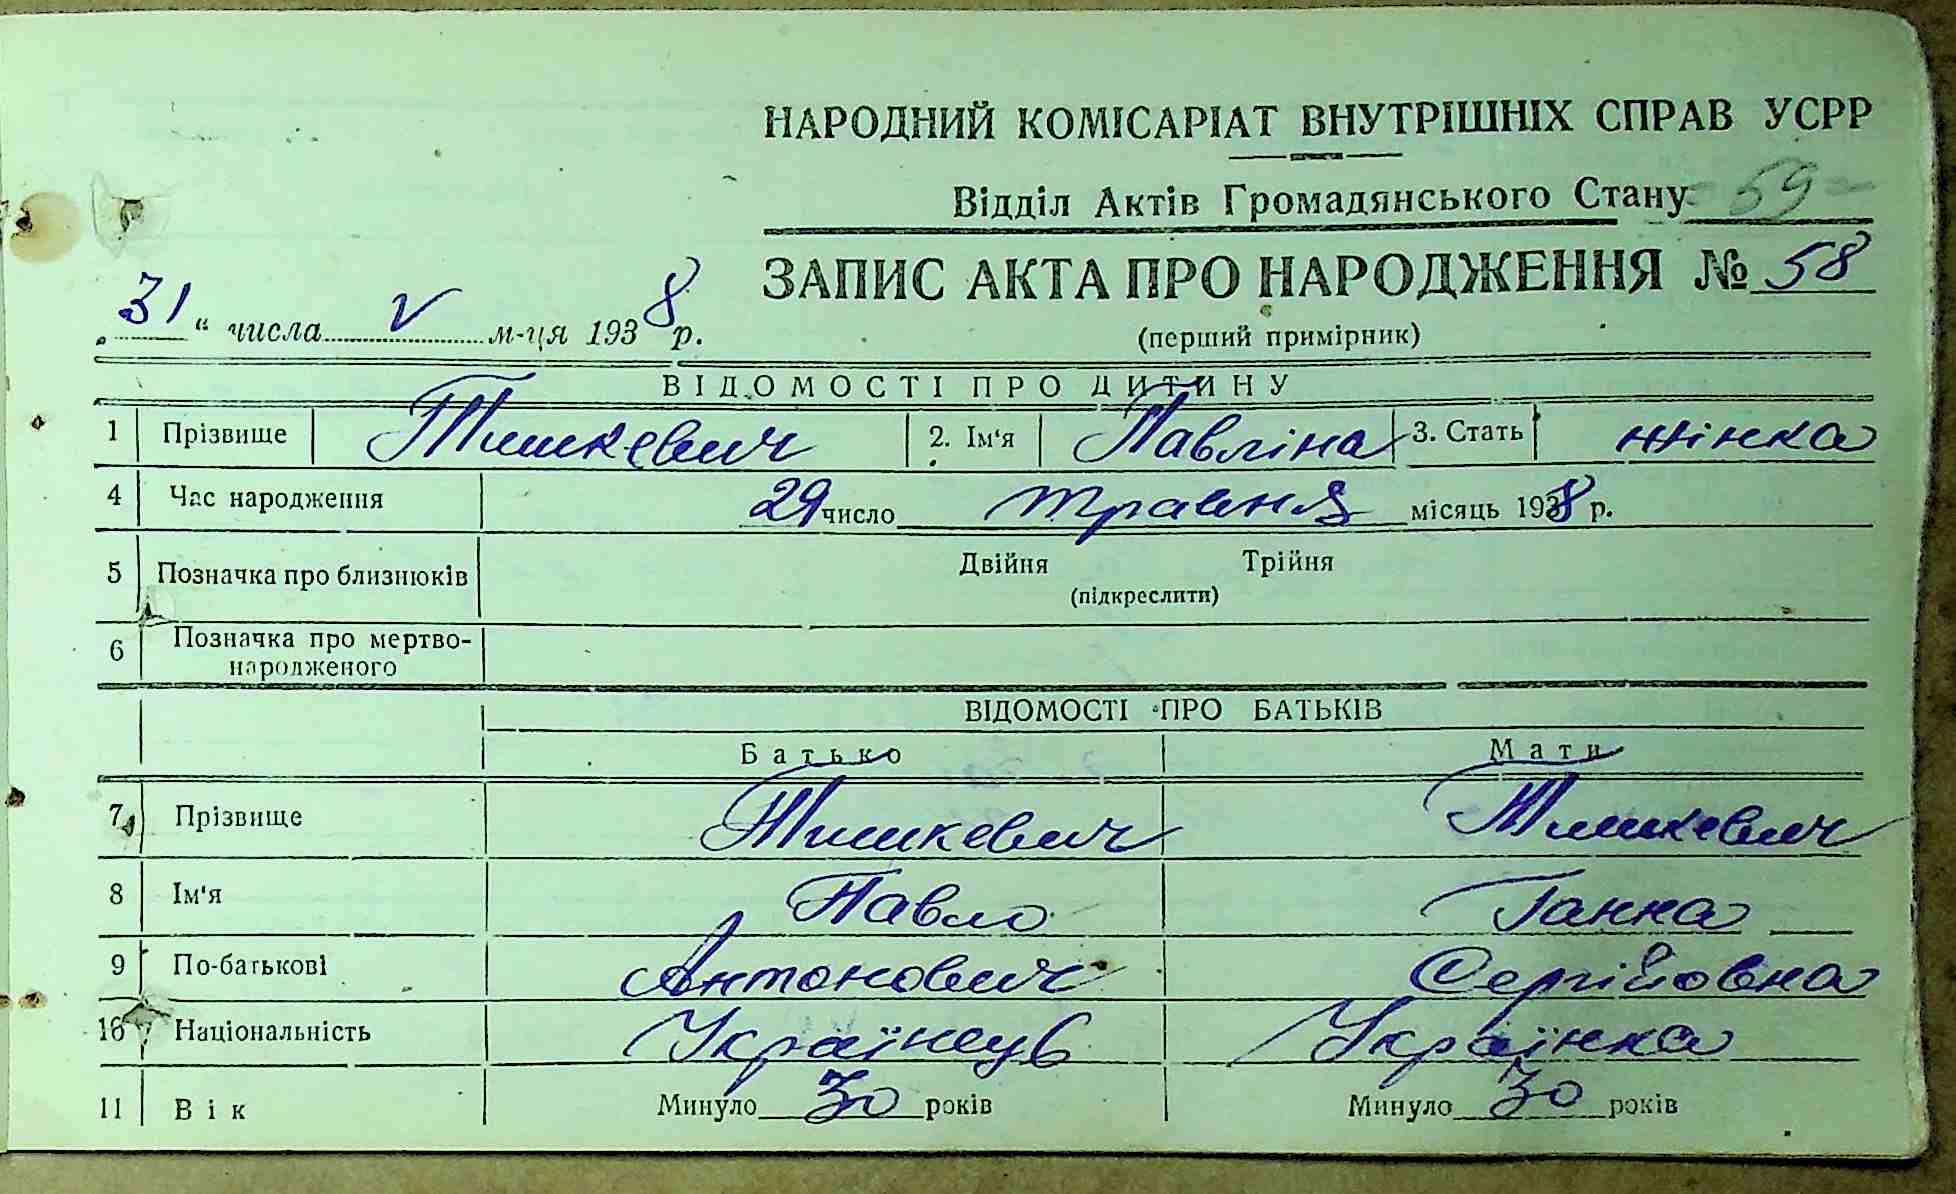 НАРОДНИЙ КОМІСАРІАТ ВНУТРІШНІХ СПРАВ УСРР
Відділ Актів Громадянського Стану -59-
ЗАПИС АКТА ПРО НАРОДЖЕННЯ № 58
„31“ числа V м-ця 1938 р.
(перший примірник)
ВІДОМОСТІ ПРО ДИТИНУ
1 Прізвище Тишкевич 2. Ім'я Павліна 3. Стать жінка
4 Час народження 29 число травня місяць 1938 р.
5 Позначка про близнюків Двійня Трійня
(підкреслити)
6 Позначка про мертво-
народженого
ВІДОМОСТІ ПРО БАТЬКІВ
Батько Мати
7 Прізвище Тишкевич Тишкевич
8 Ім'я Павло Ганна
9 По-батькові Антонович Сергійовна
10 Національність Українець Українка
11 Вік Минуло 30 років Минуло 30 років